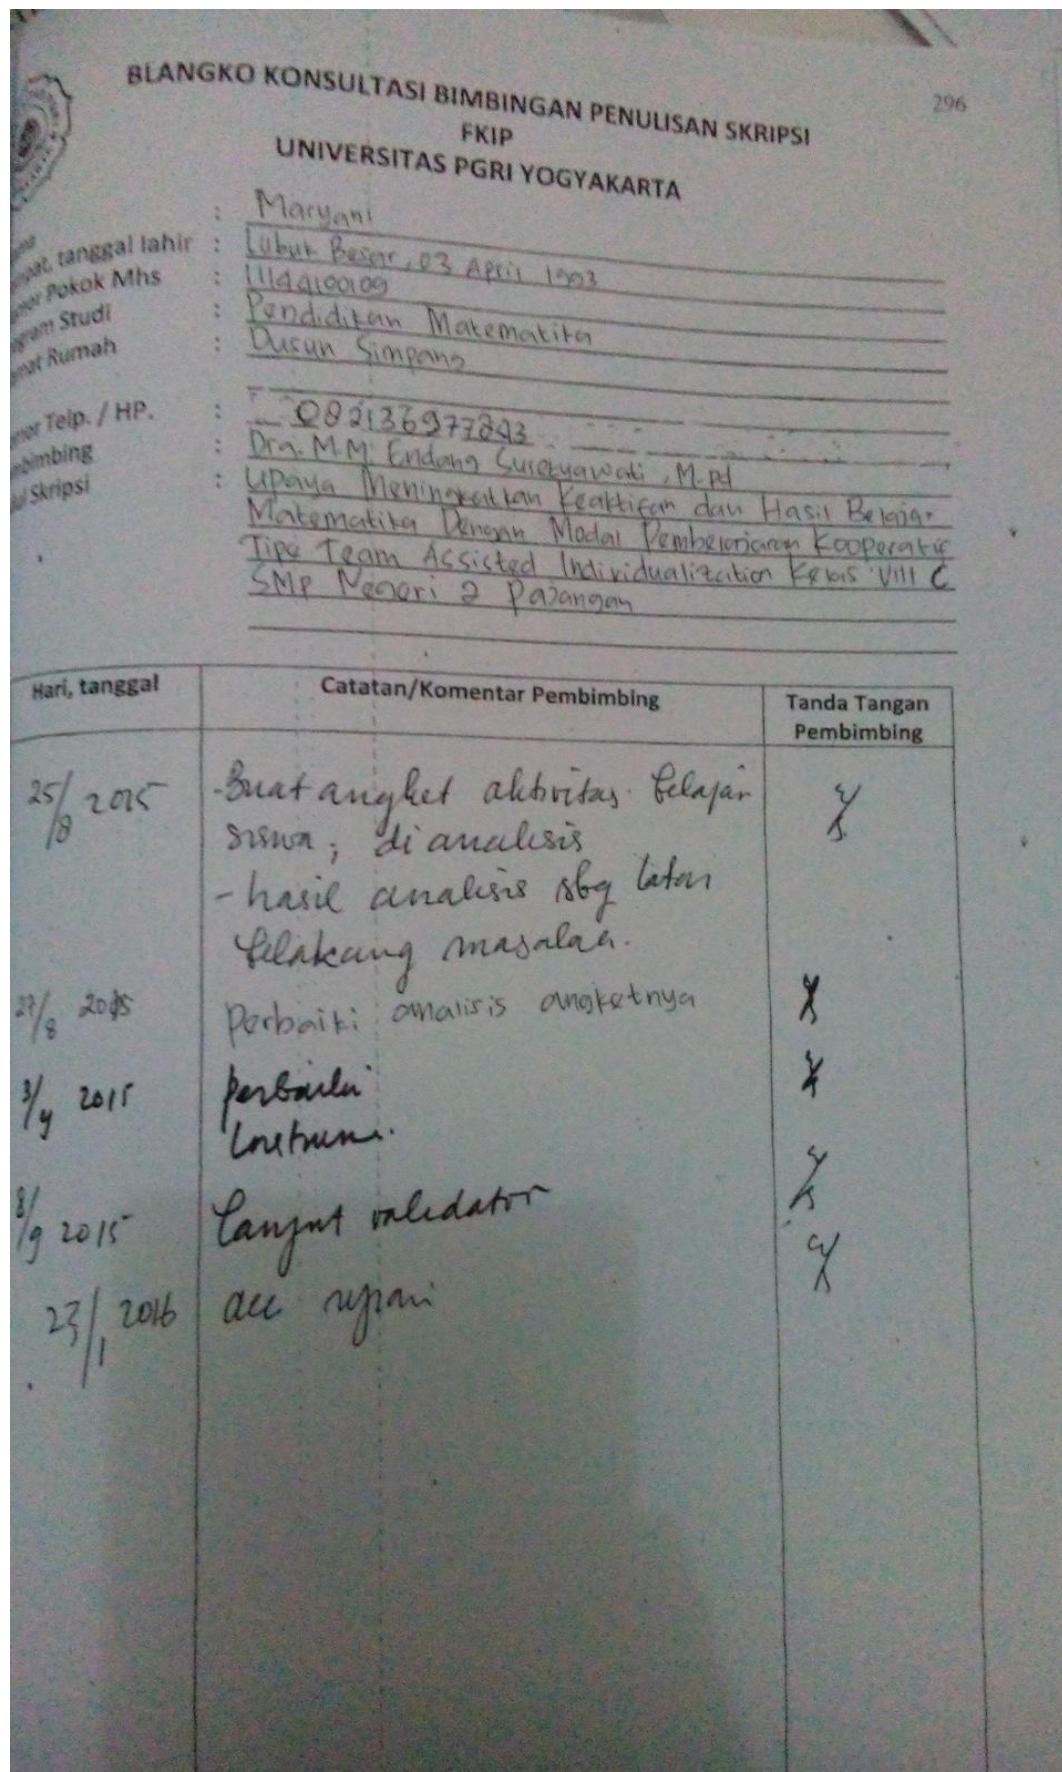 BLANGKO KONSULTASI BIMBINGAN PENULISAN SKRIPSI
296
FKIP
UNIVERSITAS PGRI YOGYAKARTA
: Maryani
tanggal lahir : Lubuk Besar, 03 April 1993
Pokok Mhs : 11144100109
Studi : Pendidikan Matematika
Rumah : Dusun Simpang
Telp. / HP. : 082136977893
: Dra. M.M. Endang Susetyawati, M.Pd
Skripsi : Upaya Meningkatkan Keaktifan dan Hasil Belajar
Matematika Dengan Model Pembelajaran Kooperatif
Tipe Team Assisted Individualization Kelas VIII C
SMP Negeri 2 Pajangan
Hari, tanggal Catatan/Komentar Pembimbing Tanda Tangan
Pembimbing
25/8 2015 - Buat angket aktivitas belajar
siswa; di analisis
- hasil analisis sbg latar
belakang masalah.
27/8 2015 Perbaiki analisis angketnya
3/9 2015 perbaiki
8/9 2015 lanjut validator
23/1 2016 acc